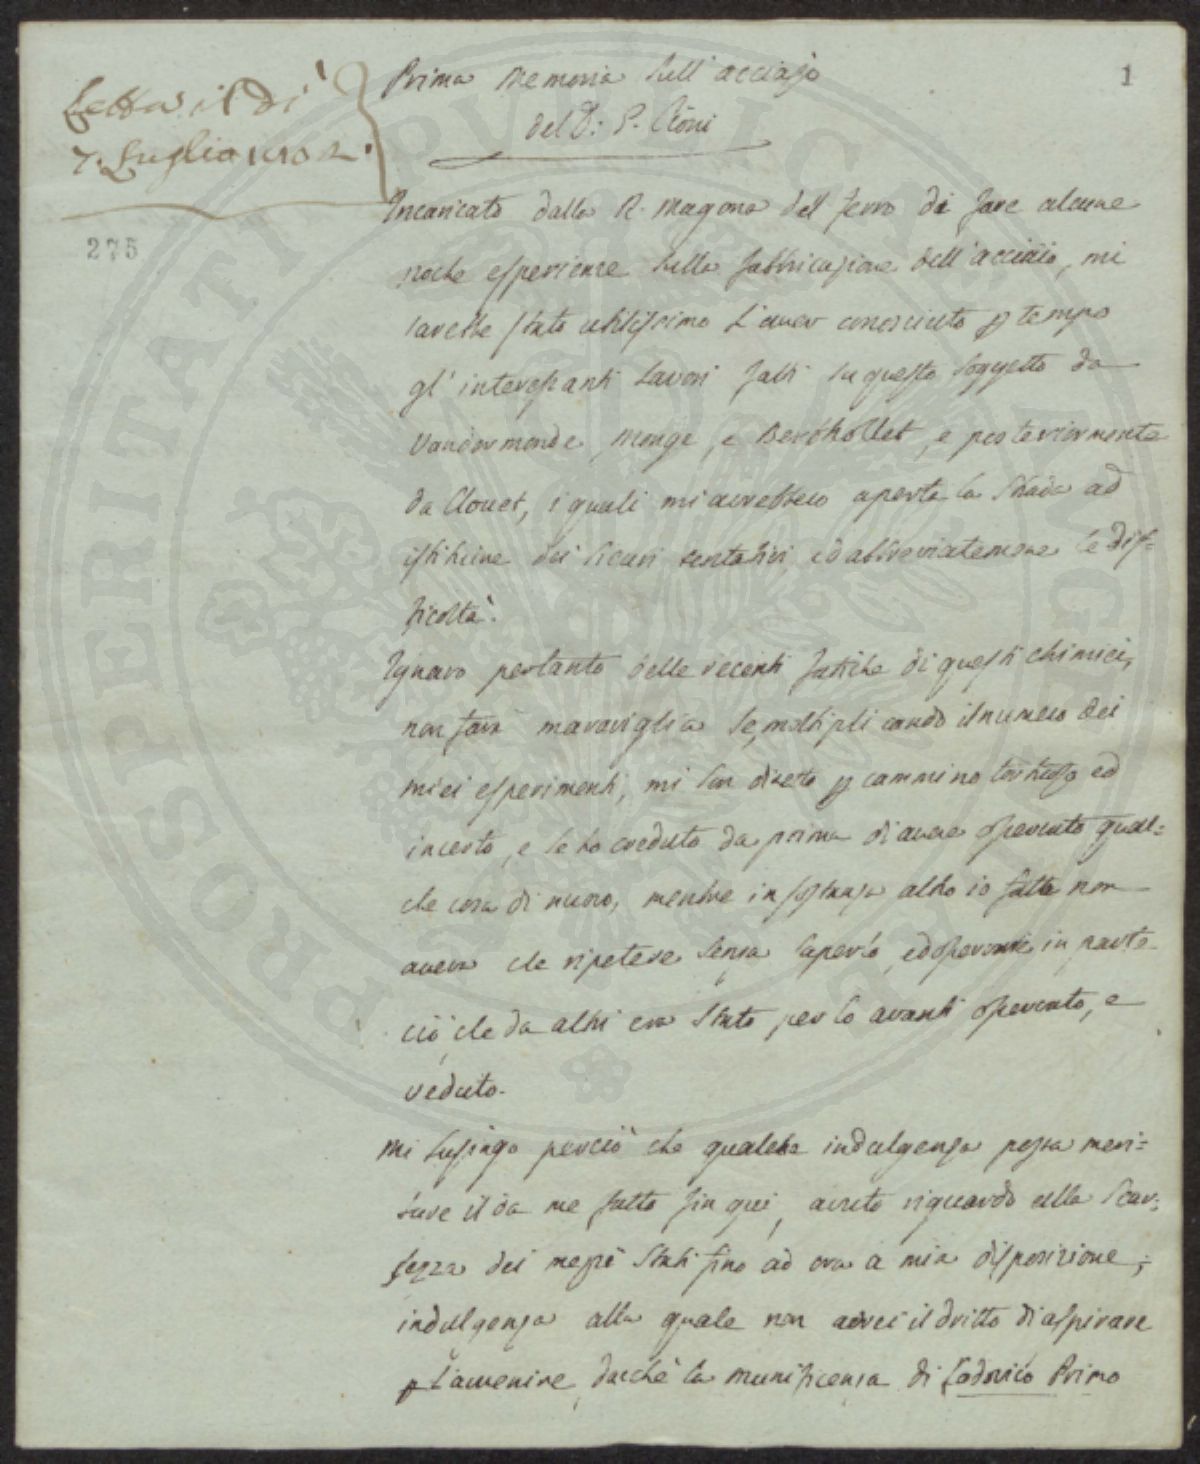 Prima Memoria sull'acciajo
del D: P. Cioni
1
Letta il dì
7. Luglio 1802.
275
Incaricato dalla R. Magona del ferro di fare alcune
poche esperienze sulla fabbricazione dell'acciaio, mi
sarebbe stato utilissimo l'aver conosciuto p tempo
gl'interessanti lavori fatti su questo soggetto da
Vandermonde, Monge, e Berthollet, e posteriormente
da Clouet, i quali mi avrebbero aperta la strada ad
istituire dei sicuri tentativi, ed abbreviatemene le dif=
ficoltà.
Ignaro pertanto delle recenti fatiche di questi chimici,
non farà maraviglia se, moltiplicando il numero dei
miei esperimenti, mi son diretto p cammino tortuoso ed
incerto, e se ho creduto da prima di avere operato qual=
che cosa di nuovo, mentre in sostanza altro io fatto non
aveva che ripetere senza saperlo, ed operare in parte
ciò che da altri era stato per lo avanti operato, e
veduto.
Mi lusingo perciò che qualche indulgenza possa meri=
tare il da me fatto fin qui, avuto riguardo alla scar=
sezza dei mezzi stati fino ad ora a mia disposizione;
indulgenza alla quale non avrei il dritto di aspirare
p l'avvenire, dacchè la munificenza di Lodovico Primo
PROSPERITATI PUBLICAE AUGENDAE